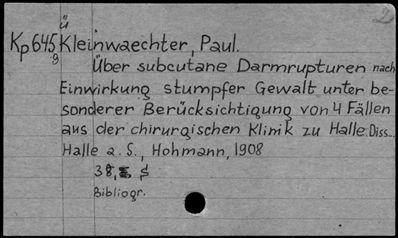 ü
Kp645 Kleinwaechter, Paul.
9
Über subcutane Darmrupturen nach
Einwirkung stumpfer Gewalt unter be-
sonderer Berücksichtigung von 4 Fällen
aus der chirurgischen Klinik zu Halle. Diss..
Halle a. S., Hohmann, 1908
38, S
Bibliogr.